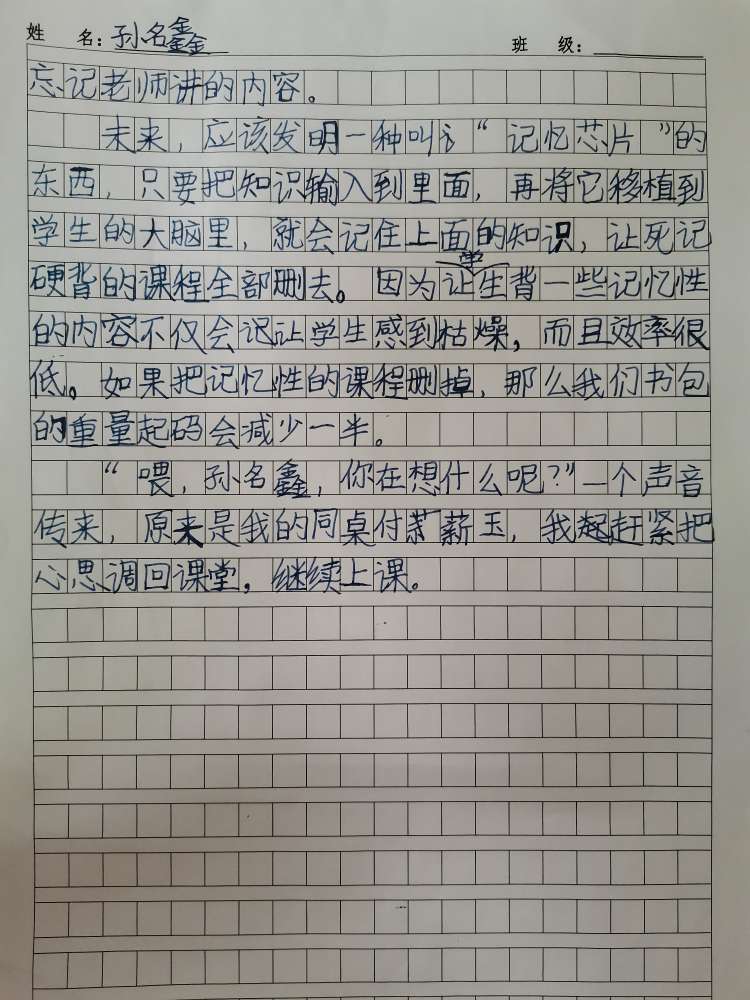 姓 名：孙名鑫 班 级：
忘记老师讲的内容。
未来，应该发明一种叫“记忆芯片”的
东西，只要把知识输入到里面，再将它移植到
学生的大脑里，就会记住上面的知识，让死记
硬背的课程全部删去。因为让学生背一些记忆性
的内容不仅会让学生感到枯燥，而且效率很
低。如果把记忆性的课程删掉，那么我们书包
的重量起码会减少一半。
“喂，孙名鑫，你在想什么呢？”一个声音
传来，原来是我的同桌付薪玉，我赶紧把
心思调回课堂，继续上课。